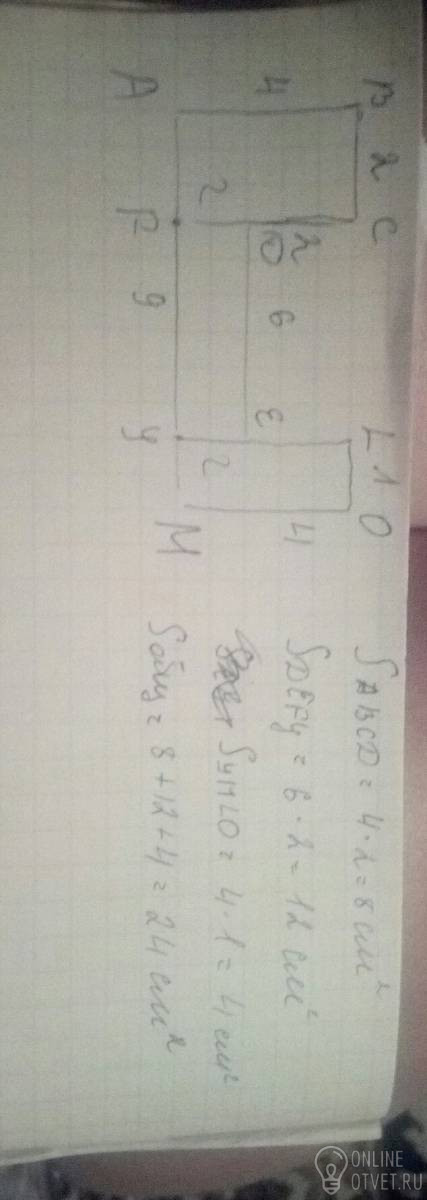 B 2 C L 1 O
4 2 D 6 E 4
2 2
A F 9 У М
SABCD = 4·2=8 см²
SDEFУ = 6·2=12 см²
SУMLO = 4·1=4 см²
Sобщ = 8+12+4=24 см²
ONLINE
OTVET.RU